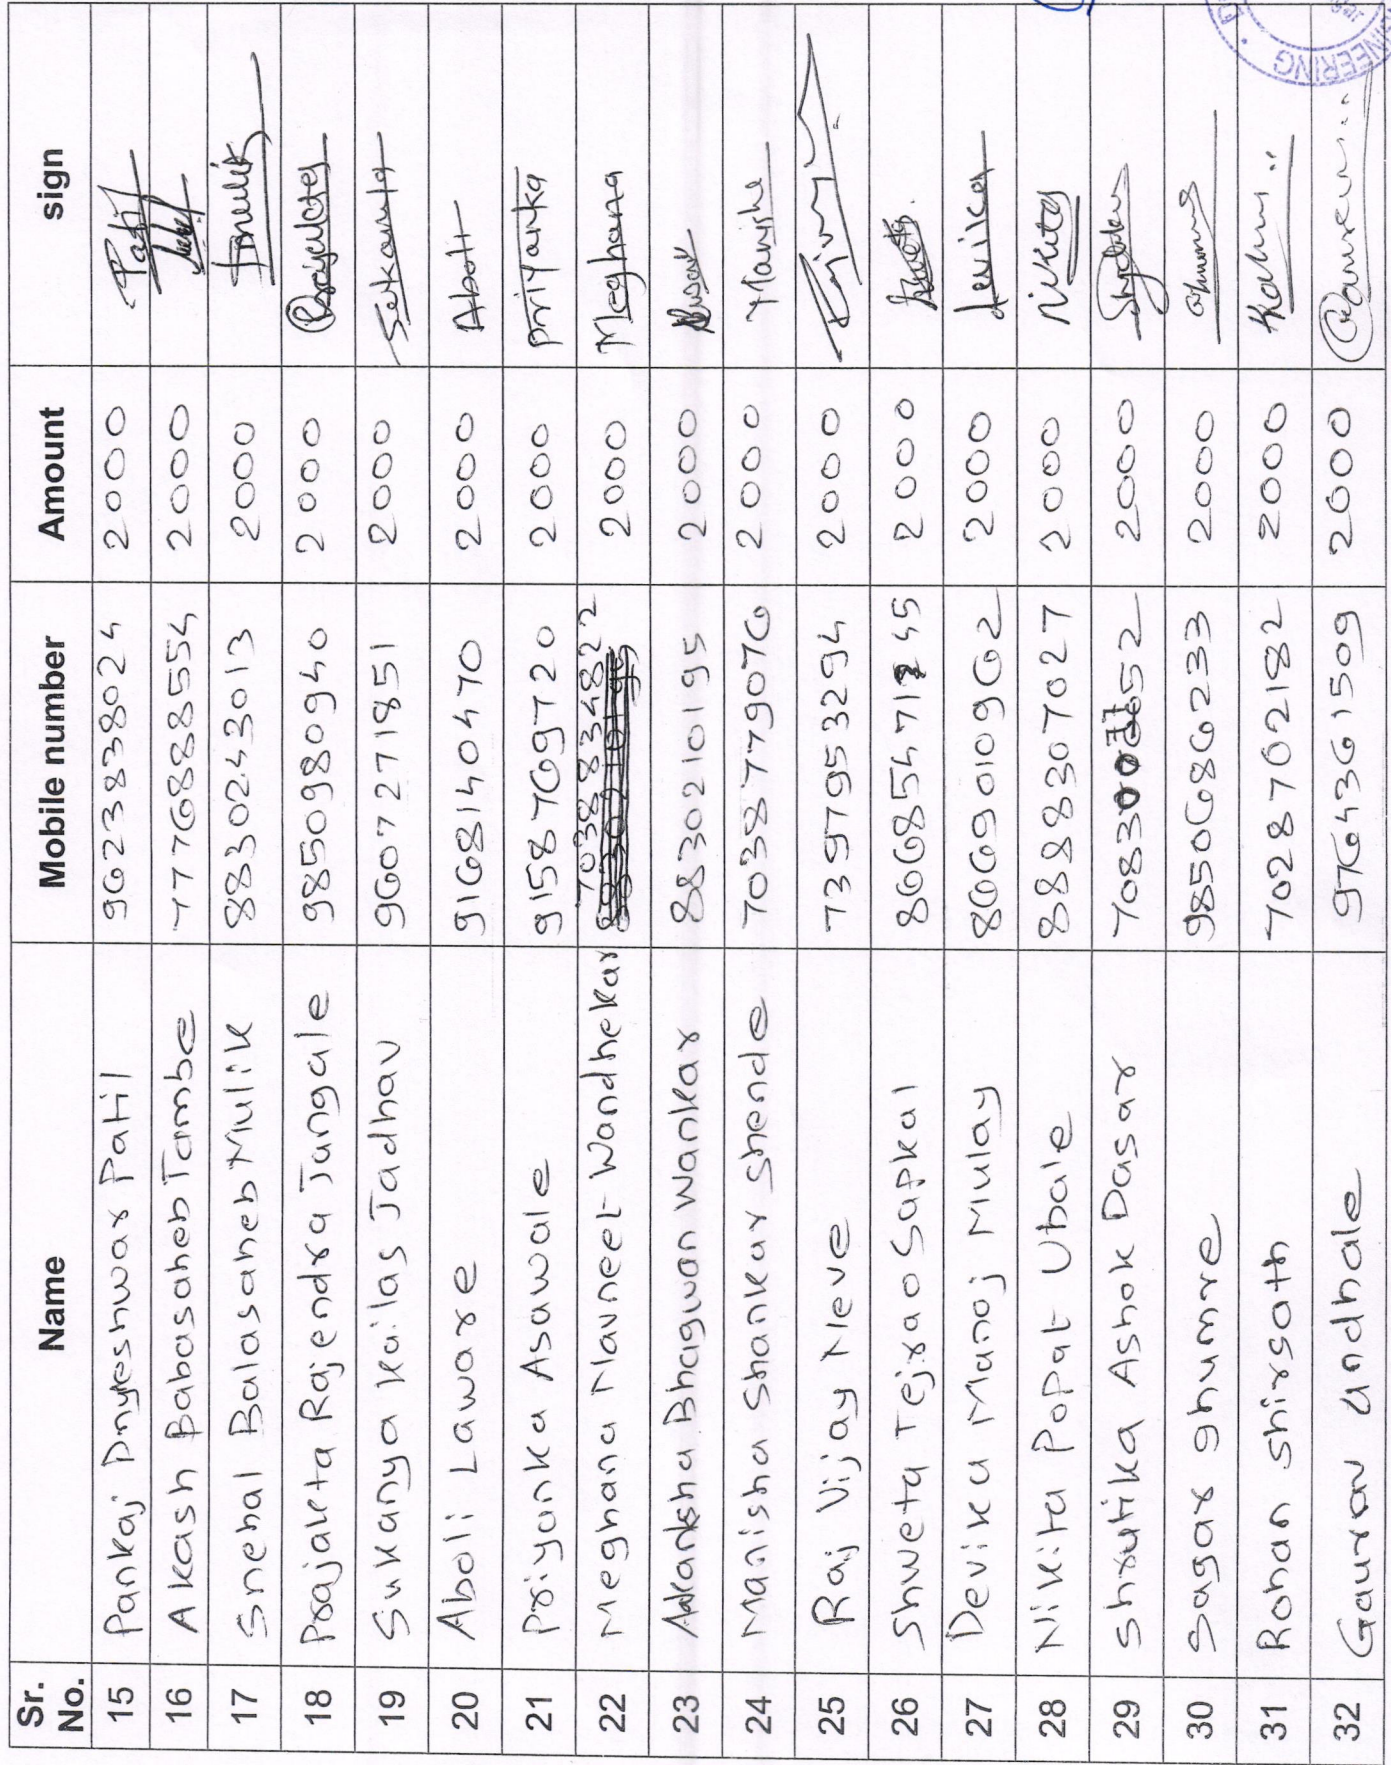 Sr. No. Name Mobile number Amount sign
15 Pankaj Dnyeshwar Patil 9623838024 2000 Patil
16 Akash Babasaheb Tambe 7776888554 2000
17 Snehal Balasaheb Mulik 8830243013 2000 Smulik
18 Prajakta Rajendra Jungale 9850980940 2000 Prajakta
19 Sukanya Kailas Jadhav 9607271851 2000
20 Aboli Laware 9168140470 2000 Aboli
21 Priyanka Asawale 9158769720 2000 Priyanka
22 Meghana Navneet Wandhekar 7038834822 2000 Meghana
23 Akanksha Bhagwan Wankar 8830210195 2000
24 Manisha Shankar Shende 7038779076 2000 Manisha
25 Raj Vijay Neve 7397953294 2000
26 Shweta Tejrao Sapkal 2000
27 Devika Manoj Mulay 8669010962 2000
28 Nikita Popat Ubale 8888307027 2000 Nikita
29 Shrutika Ashok Dasar 2000
30 Sagar Ghumre 9850686233 2000
31 Rohan Shirsath 7028702182 2000
32 Gaurav Undhale 9764361509 2000